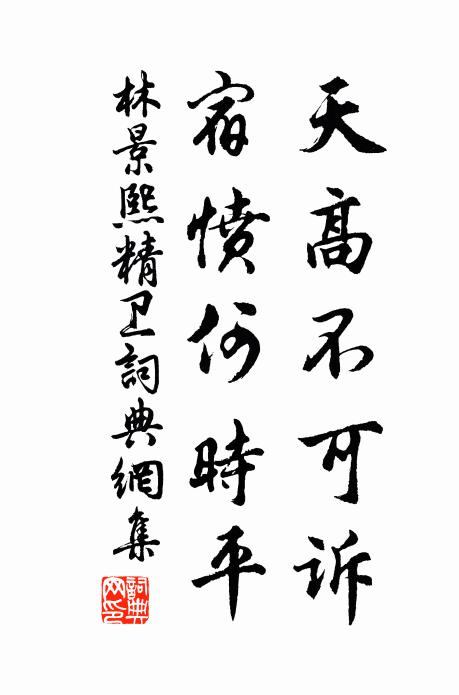 天高不可訴
宿憤何時平
林景熙精卫詞典網集
詞典网印